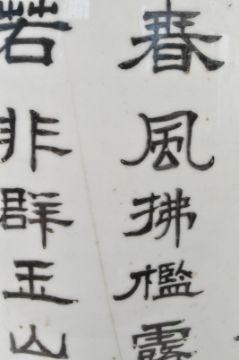 春風拂檻露
若非群玉山